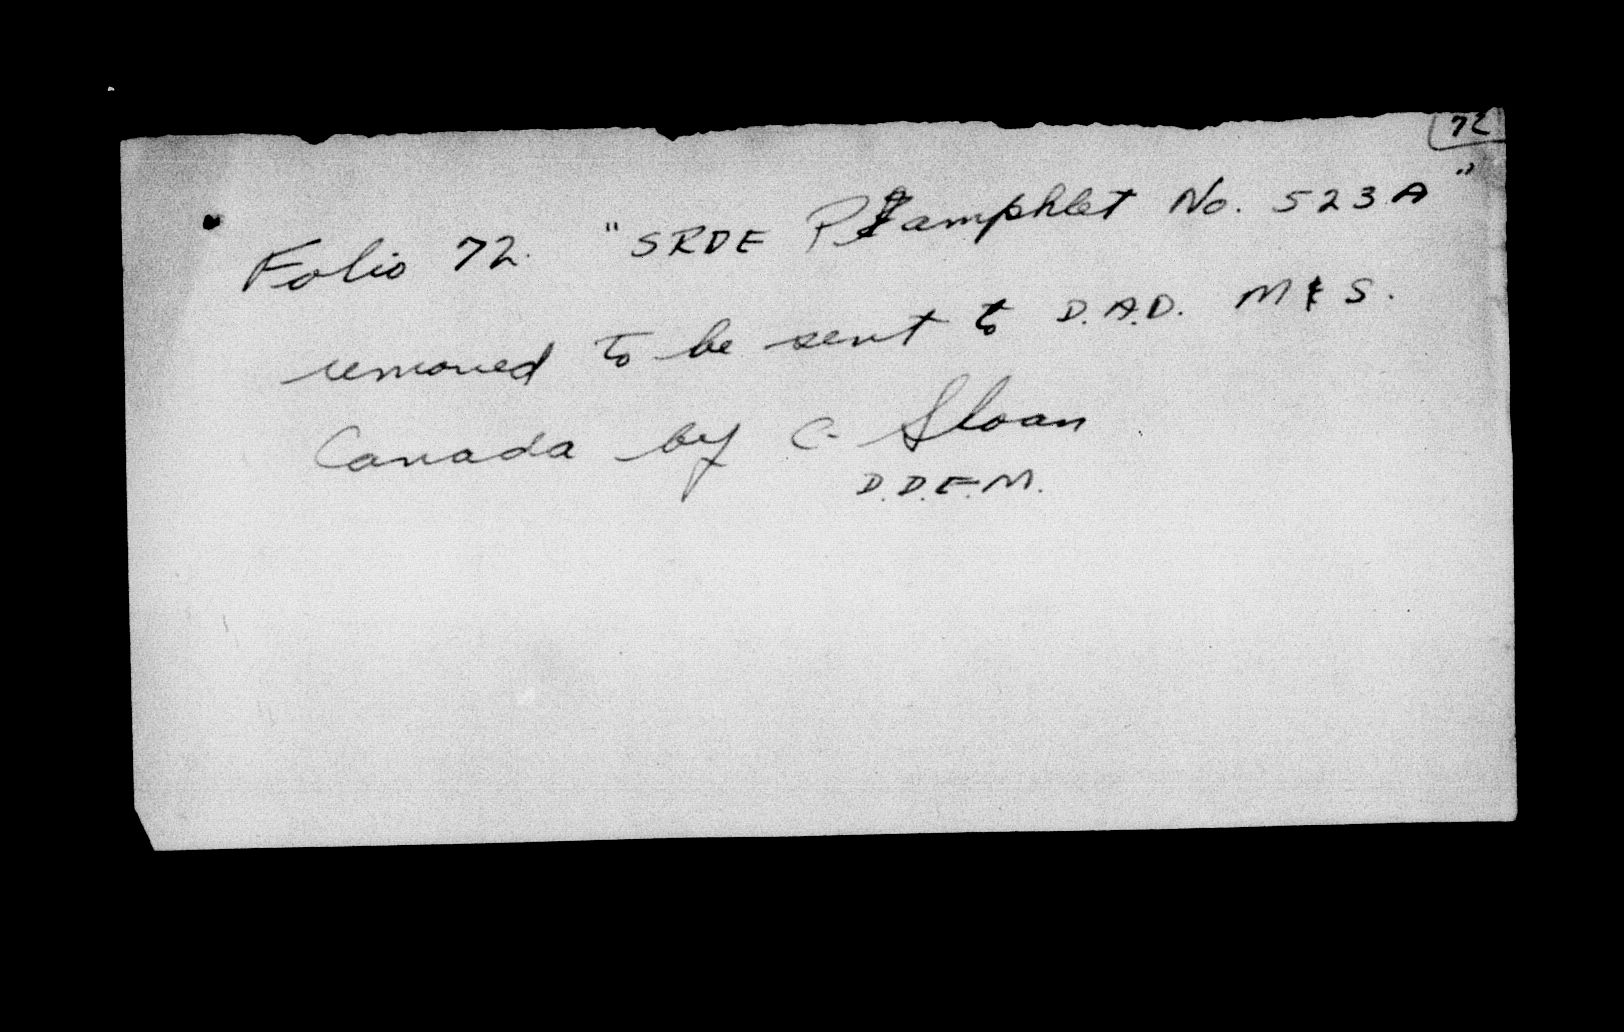 72
Folio 72. "SRDE Pamphlet No. 523A"
removed to be sent to D.A.D. M & S.
Canada by C. Sloan
D.D.E.M.